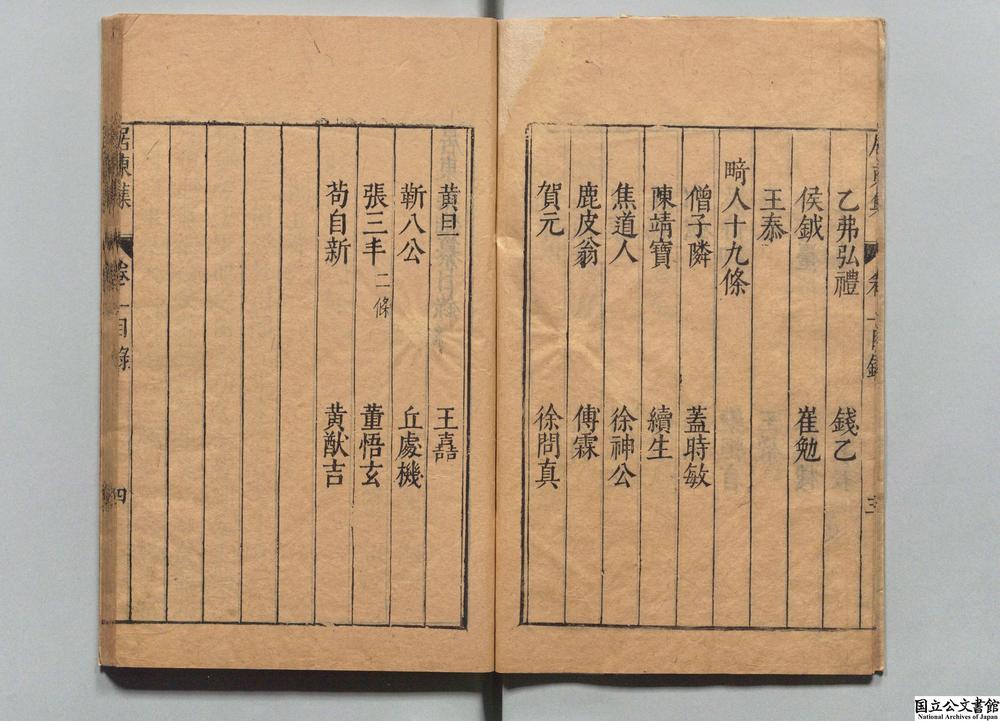 乙弗弘禮　錢乙
侯鉞　崔勉
王泰
畸人十九條
僧子隣　蓋時敏
陳靖寶　續生
焦道人　徐神公
鹿皮翁　傅霖
賀元　徐問真
黃旦　王嚞
靳八公　丘處機
張三丰 二條　董悟玄
苟自新　黃猷吉
居東集　卷一目錄　四
国立公文書館
National Archives of Japan